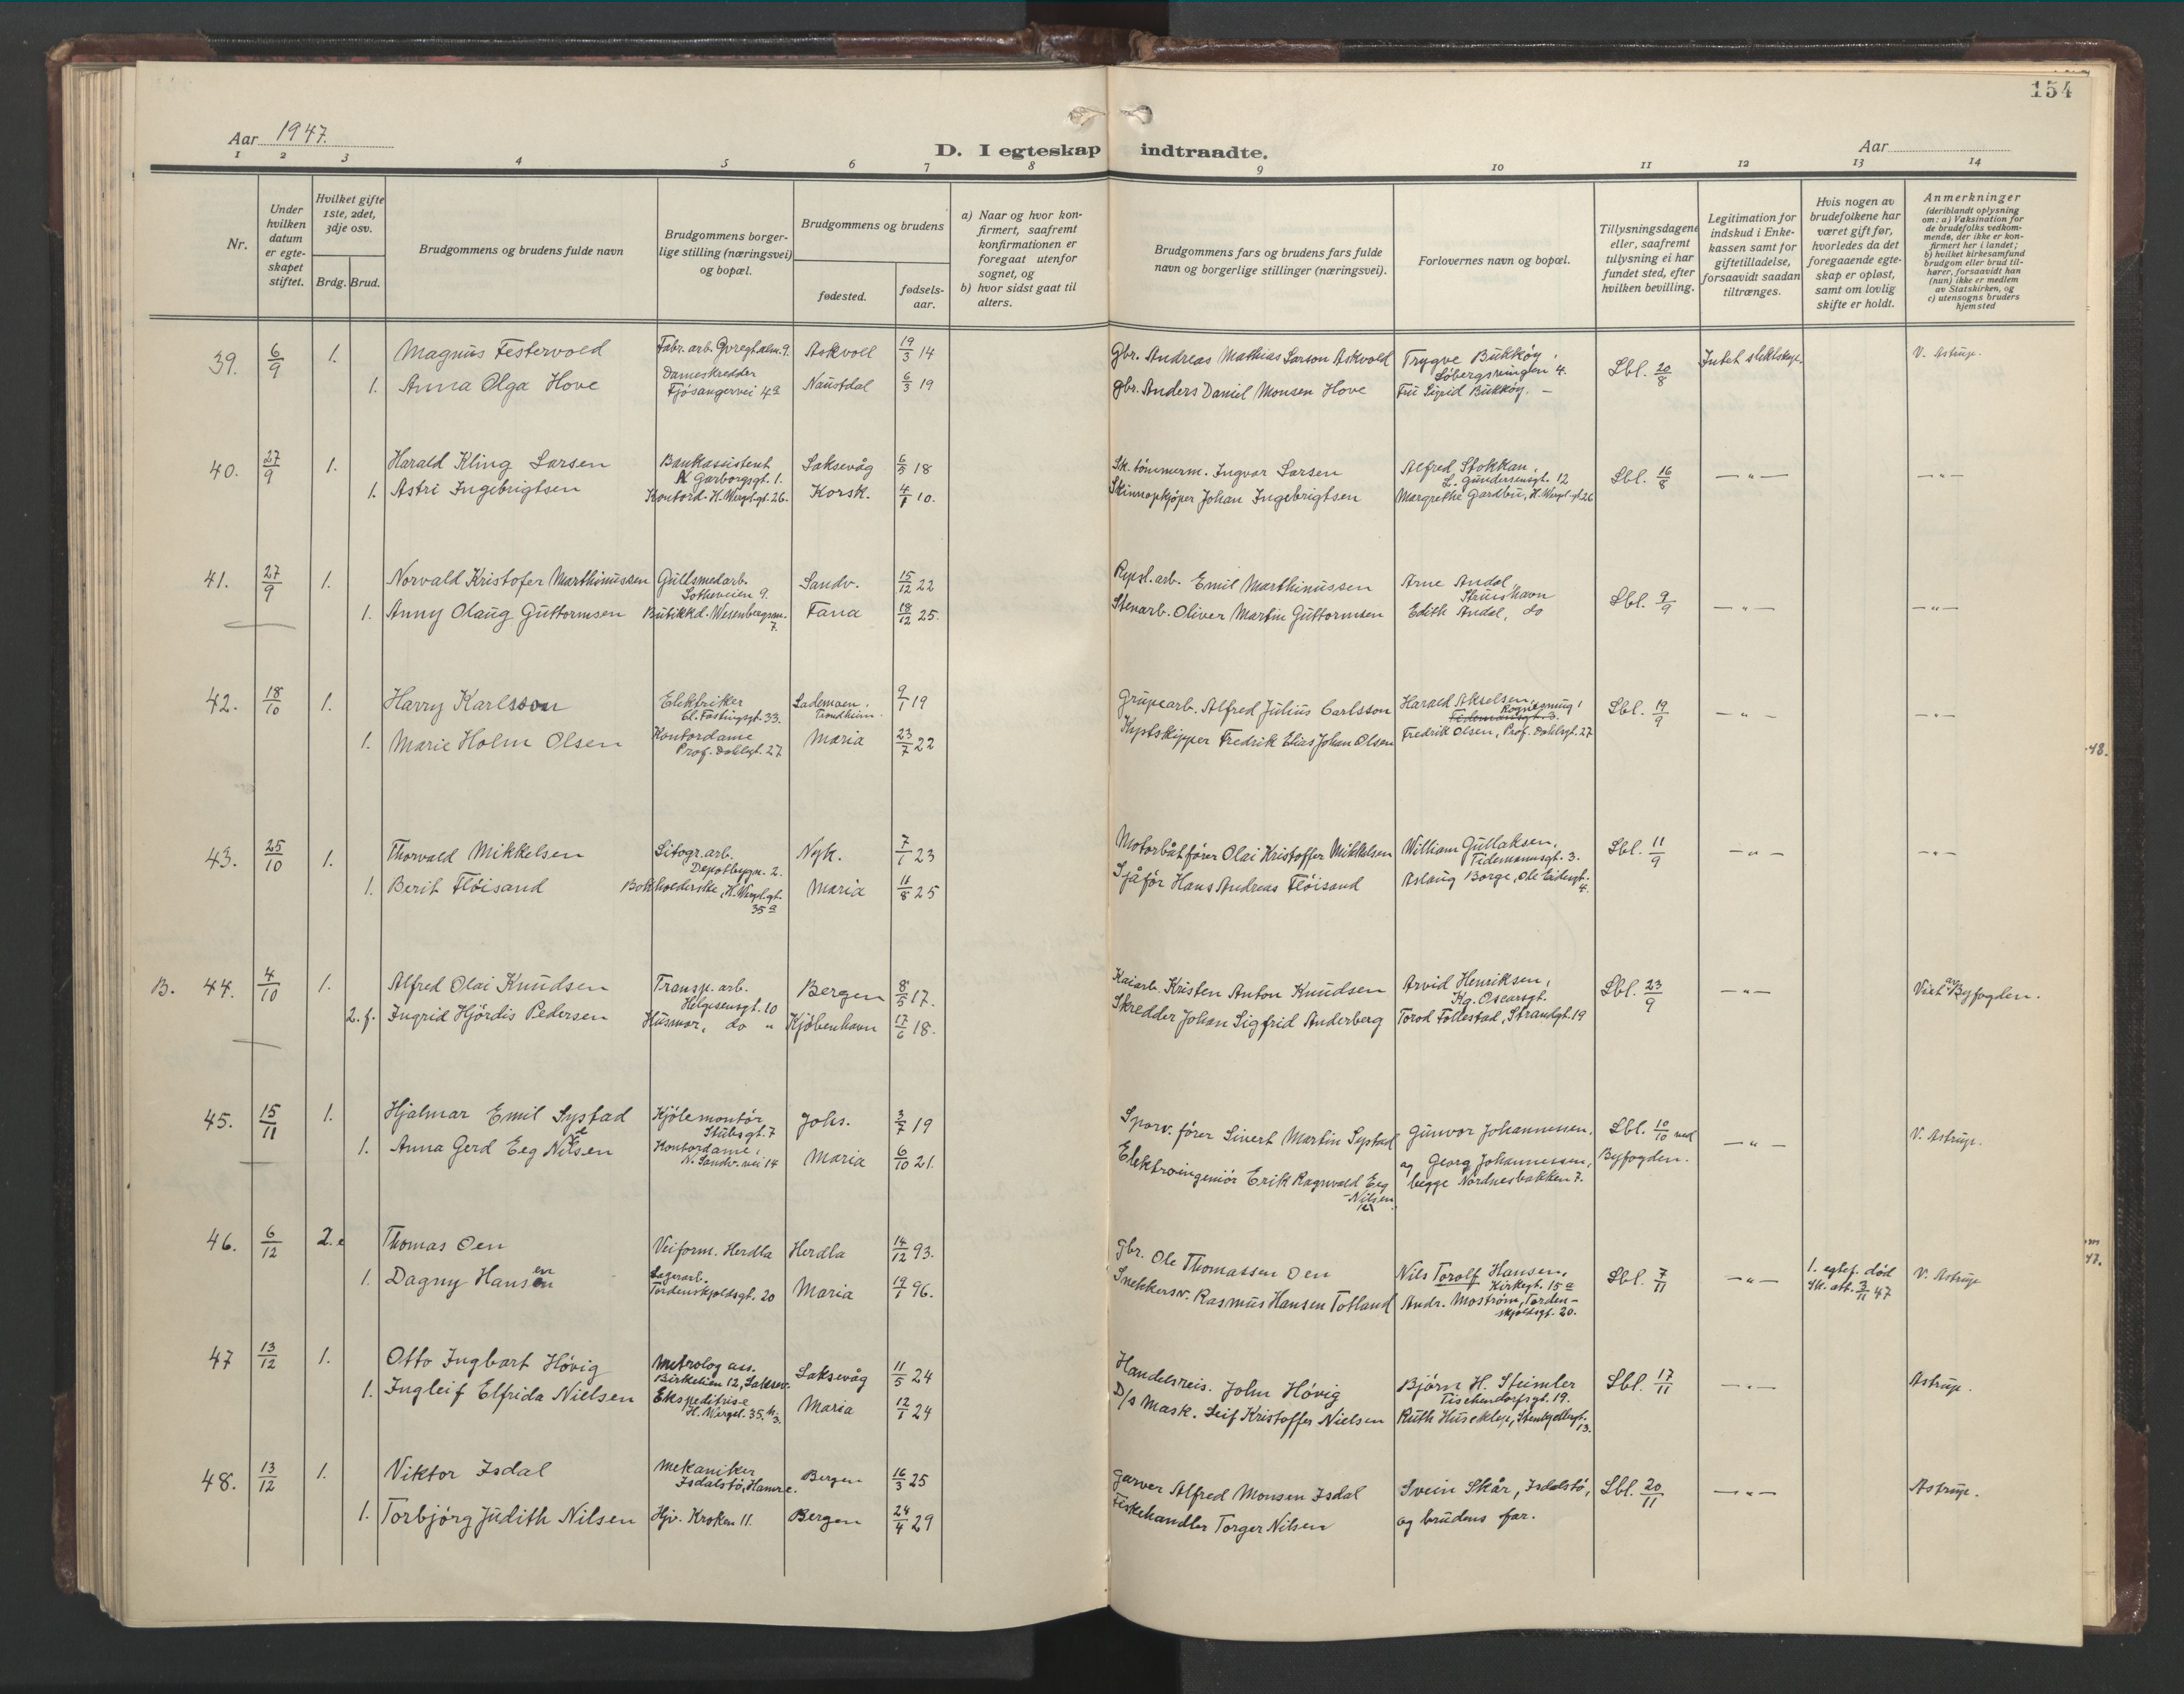 154
Aar 1947.
D. I egteskap indtraadte.
Aar
1 2 3 4 5 6 7 8 9 10 11 12 13 14
Nr.
Under hvilken datum er egteskapet stiftet.
Hvilket gifte 1ste, 2det, 3dje osv.
Brdg. Brud.
Brudgommens og brudens fulde navn
Brudgommens borgerlige stilling (næringsvei) og bopæl.
Brudgommens og brudens
fødested.
fødselsaar.
a) Naar og hvor konfirmert, saafremt konfirmationen er foregaat utenfor sognet, og
b) hvor sidst gaat til alters.
Brudgommens fars og brudens fars fulde navn og borgerlige stillinger (næringsvei).
Forlovernes navn og bopæl.
Tillysningsdagene eller, saafremt tillysning ei har fundet sted, efter hvilken bevilling.
Legitimation for indskud i Enkekassen samt for giftetilladelse, forsaavidt saadan tiltrænges.
Hvis nogen av brudefolkene har været gift før, hvorledes da det foregaaende egteskap er opløst, samt om lovlig skifte er holdt.
Anmerkninger (deriblandt oplysning om: a) Vaksination for de brudefolks vedkommende, der ikke er konfirmert her i landet; b) hvilket kirkesamfund brudgom eller brud tilhører, forsaavidt han (hun) ikke er medlem av Statskirken, og c) utensogns bruders hjemsted
39. 6/9 1. Magnus Festervold Fabr. arb. 9. Askvoll 19/3 14 Gbr. Andreas Mathias Larson Askvold Trygve Bukkøy, Löbergsveingen 4. Lbl. 20/8 Intet slektskap. V. Astrup.
1. Anna Olga Hove Dameskredder Fjösangervei 4a Naustdal 6/3 19 Gbr. Anders Daniel Monsen Hove Fru Sigrid Bukköy. —
40. 27/9 1. Harald Kling Larsen Bankassistent A Garborgsgt. 1. Laksevåg 6/5 18 Sk. tömmerm. Ingvar Larsen Alfred Stokkan, L. Gundersensgt. 12 Lbl. 16/8 — " — — " —
1. Astri Ingebrigtsen Kontord. H. Wergl. gt. 26. Korsk. 4/1 10. Skinnopkjöper Johan Ingebrigtsen Margrethe Gardbu, H. Wergl. gt 26
41. 27/9 1. Norvald Kristofer Marthinussen Gullsmedarb. Sotheveien 9. Sandv. 15/12 22 Emil Marthinussen Arne Andal, Strushavn Lbl. 9/9 — " — — " —
1. Anny Olaug Guttormsen Butikkd. 7. Fana 18/12 25. Stenarb. Oliver Martin Guttormsen Edith Andal, do
42. 18/10 1. Harry Karlsson Elektriker Cl. Fastingsgt. 33. Lademoen, Trondheim. 9/1 19 Grupearb. Alfred Julius Carlsson Harald Akselsen, Lbl. 19/9 — " — — " —
1. Marie Holm Olsen Kontordame Prof. Dahlsgt. 27 Maria 23/7 22 Kystskipper Fredrik Elias Johan Olsen Fredrik Olsen, Prof. Dahlsgt. 27
43. 25/10 1. Thorvald Mikkelsen Litogr. arb. Depotbygn. 2. Nyk. 7/1 23 Motorbåtförer Olai Kristoffer Mikkelsen William Gullaksen, Tidemannsgt. 3. Lbl. 11/9 — " — — " —
1. Berit Flöisand Bokholderske, H. Wergl. gt. 35a Maria 11/8 25 Sjåför Hans Andreas Flöisand Aslaug Borge, Ole Eidesgt. 4.
B. 44. 4/10 1. Alfred Olai Knudsen Transp. arb. Helgesensgt. 10 Bergen 8/5 17. Kaiarb. Kristen Anton Knudsen Arvid Henriksen, Kg. Oscarsgt. Lbl. 23/9 — " — Viet av Byfogden.
2. f. Ingrid Hjördis Pedersen Husmor, do " Kjöbenhavn 17/6 18. Skredder Johan Sigfrid Anderberg Torod Follestad, Strandgt. 19
45. 15/11 1. Hjalmar Emil Systad Kjölemontör Stubsgt. 7 Johs. 3/7 19 Sporv. förer Sivert Martin Systad Gunvor Johannessen, Lbl. 10/10 ved Byfogden. — " — V. Astrup.
1. Anna Gerd Eeg Nilsen Kontordame, N. Sandv. vei 14 Maria 6/10 21. Elektroingeniör Erik Ragnvald Eeg-Nilsen og Georg Johannessen, begge Nordnesbakken 7.
46. 6/12 2. e Thomas Oen Veiform. Herdla Herdla 14/12 93. Gbr. Ole Thomassen Oen Nils Torolf Hansen, Kirkegt. 15a Lbl. 7/11 — " — 1. egtef. död sk. att. 3/11 47 V. Astrup
1. Dagny Hansen Lagerarb. Tordenskjoldsgt. 20 Maria 19/1 96. Snekkersv. Rasmus Hansen Totland Andr. Moström, Tordenskjoldsgt. 20.
47 13/12 1. Otto Ingbart Hövig Metrolog ass. Birkelien 12, Laksev. Laksevåg 11/5 24 Handelsreis. John Hövig Björn H. Steimler Tischendorfsgt. 19. Lbl. 17/11 — " — Astrup.
1. Ingleif Elfrida Nielsen Ekspeditrise H. Wergel. 35. Maria 12/1 24 D/s Mask. Leif Kristoffer Nielsen Ruth Huseklep, 13.
48. 13/12 1. Viktor Isdal Mekaniker Isdalstö, Hamre. Bergen 16/3 25 Garver Alfred Monsen Isdal Svein Skår, Isdalstö, Lbl. 20/11 — " — Astrup.
1. Torbjörg Judith Nilsen Hjv. Kroken 11. Bergen 24/4 29 Fiskehandler Torger Nilsen og brudens far.